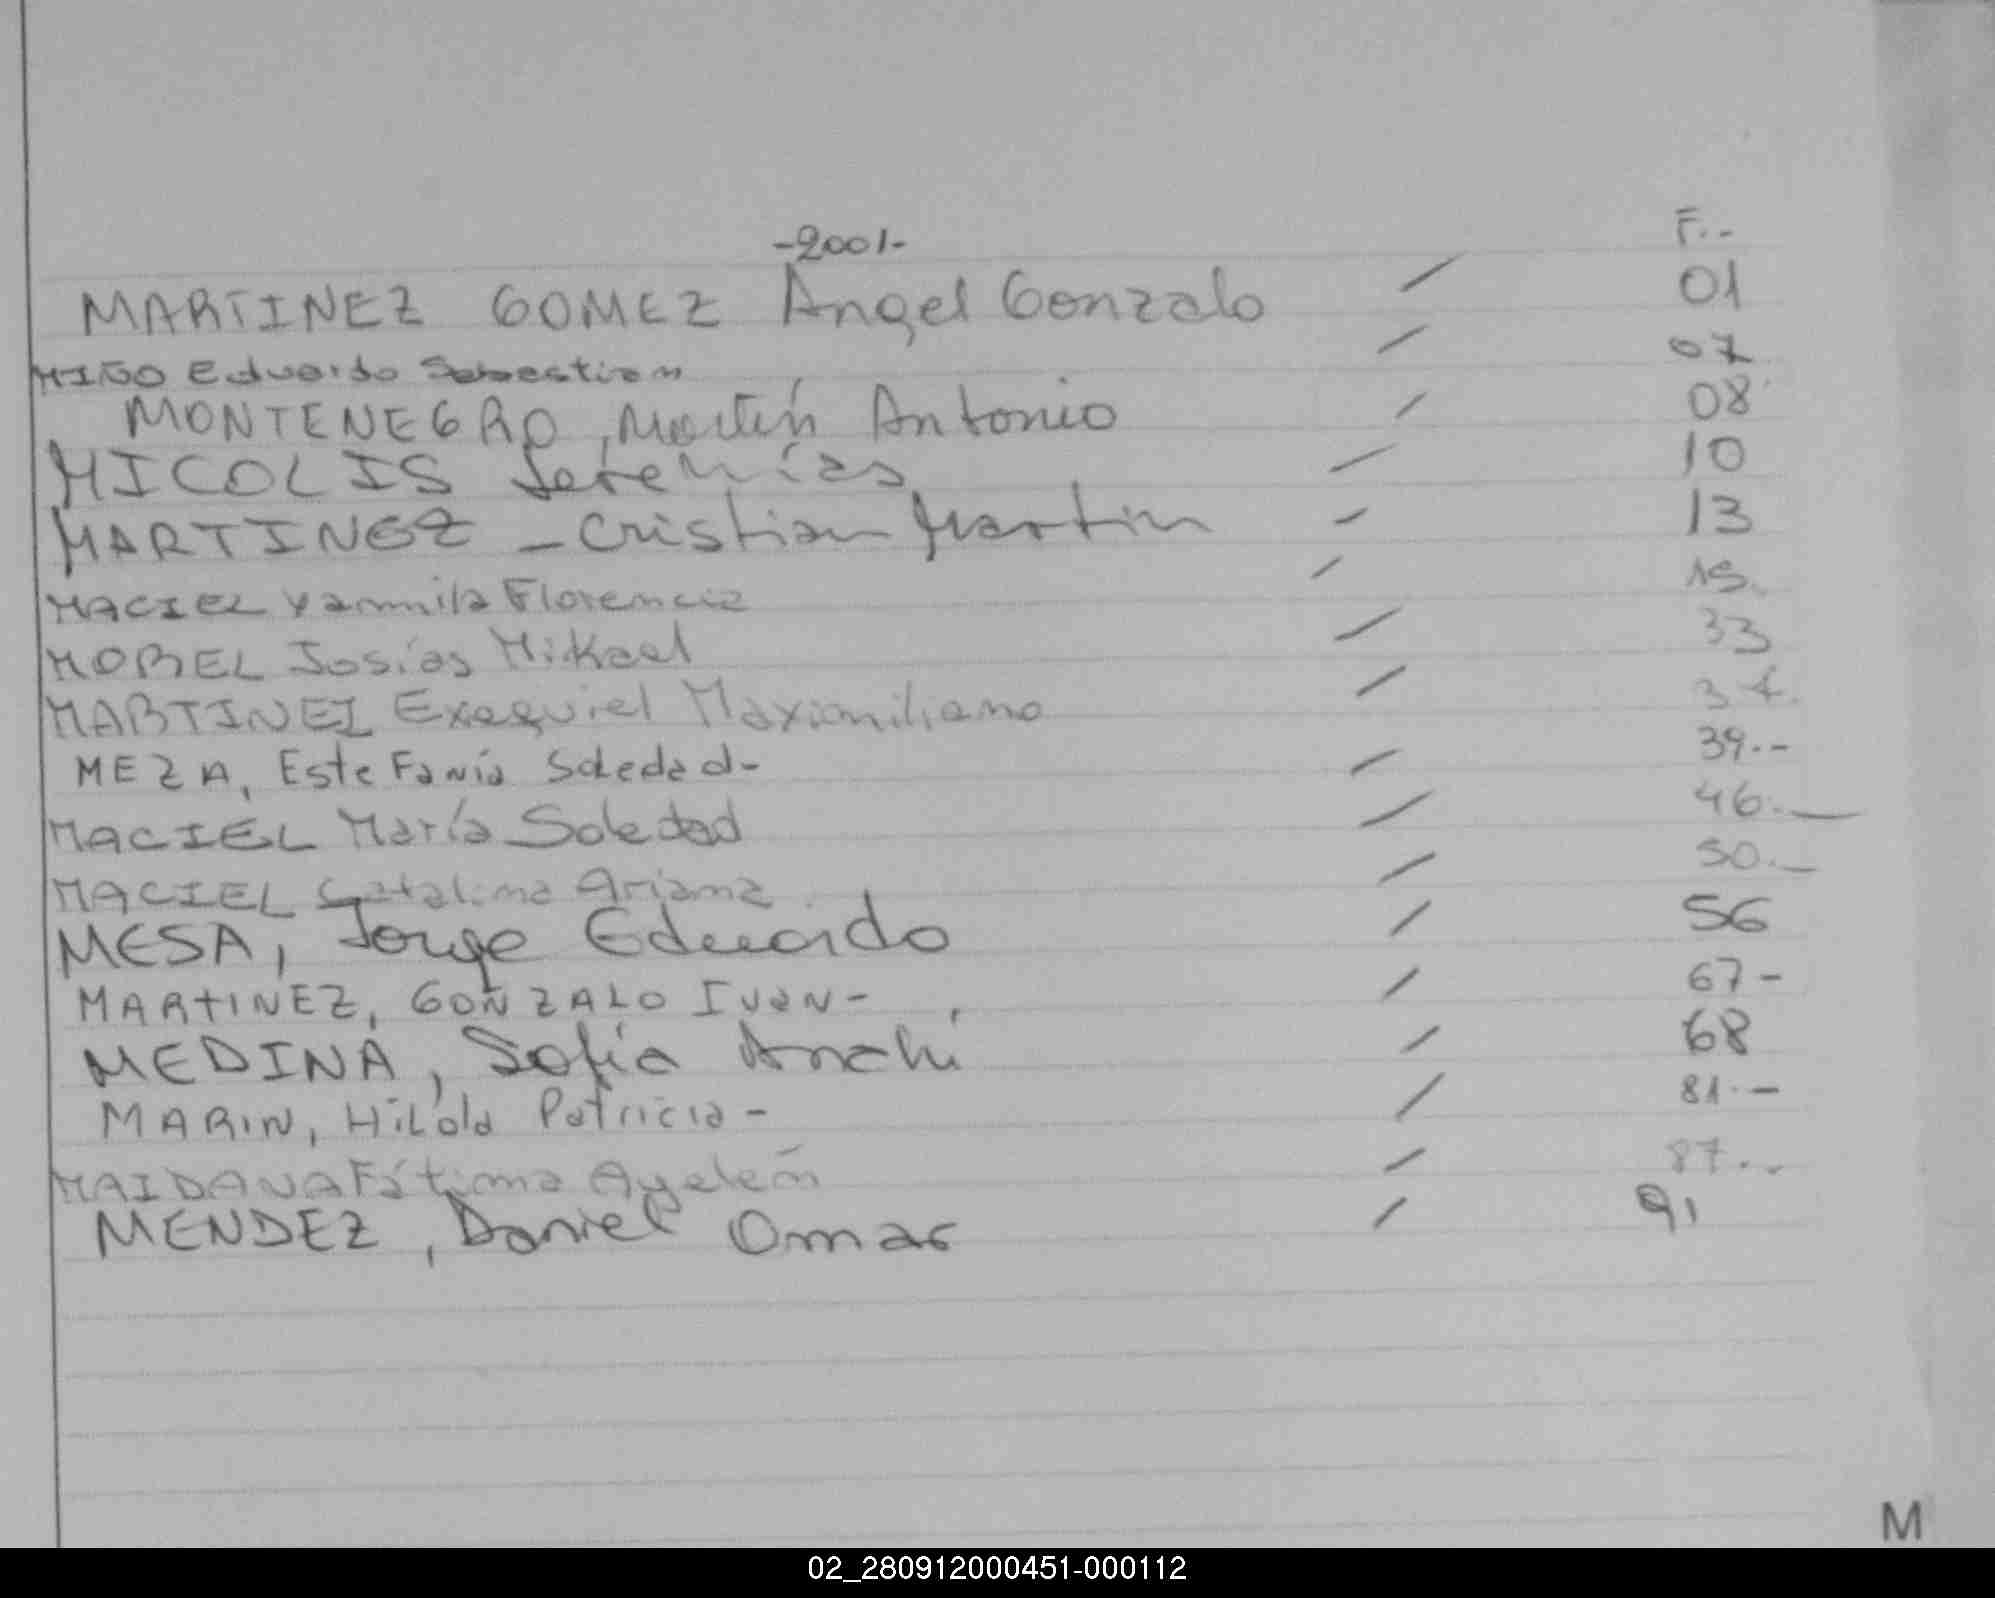 -2001-
F..-
MARTINEZ GOMEZ Angel Gonzalo / 01
MIÑO Eduardo Sebastian / 07
MONTENEGRO, Martín Antonio / 08
MICOLIS Jeremías / 10
MARTINEZ - Cristian Martin / 13
MACIEL Yammila Florencia / 15.
MOREL Josías Mikael / 33
MARTINEZ Exequiel Maximiliano /
MEZA, Estefanía Soledad- / 39.--
MACIEL María Soledad / 46.__
MACIEL Catalina Ariana / 50._
MESA, Jorge Eduardo / 56
MARTINEZ, GONZALO IVAN- / 67-
MEDINA, Sofía Anahí / 68
MARIN, Hilda Patricia- / 81.-
MAIDANA Fátima Ayelén / 87...
MENDEZ, Daniel Omar / 91
M
02_280912000451-000112